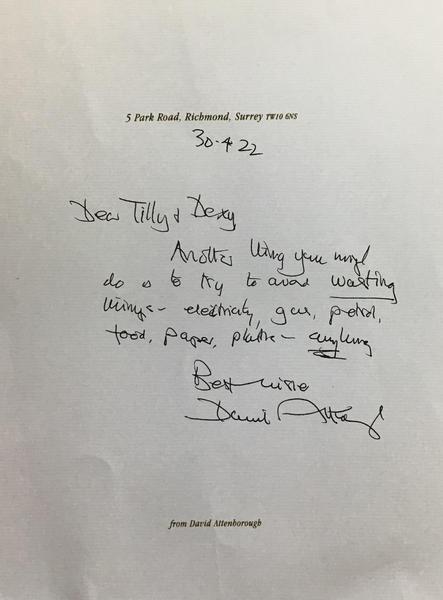 5 Park Road, Richmond, Surrey TW10 6NS
30.4.22
Dear Tilly & Dexy
Another thing you might
do is to try to avoid wasting
things - electricity, gas, petrol,
food, paper, plastic - anything
Best wishes
David Attenborough
from David Attenborough